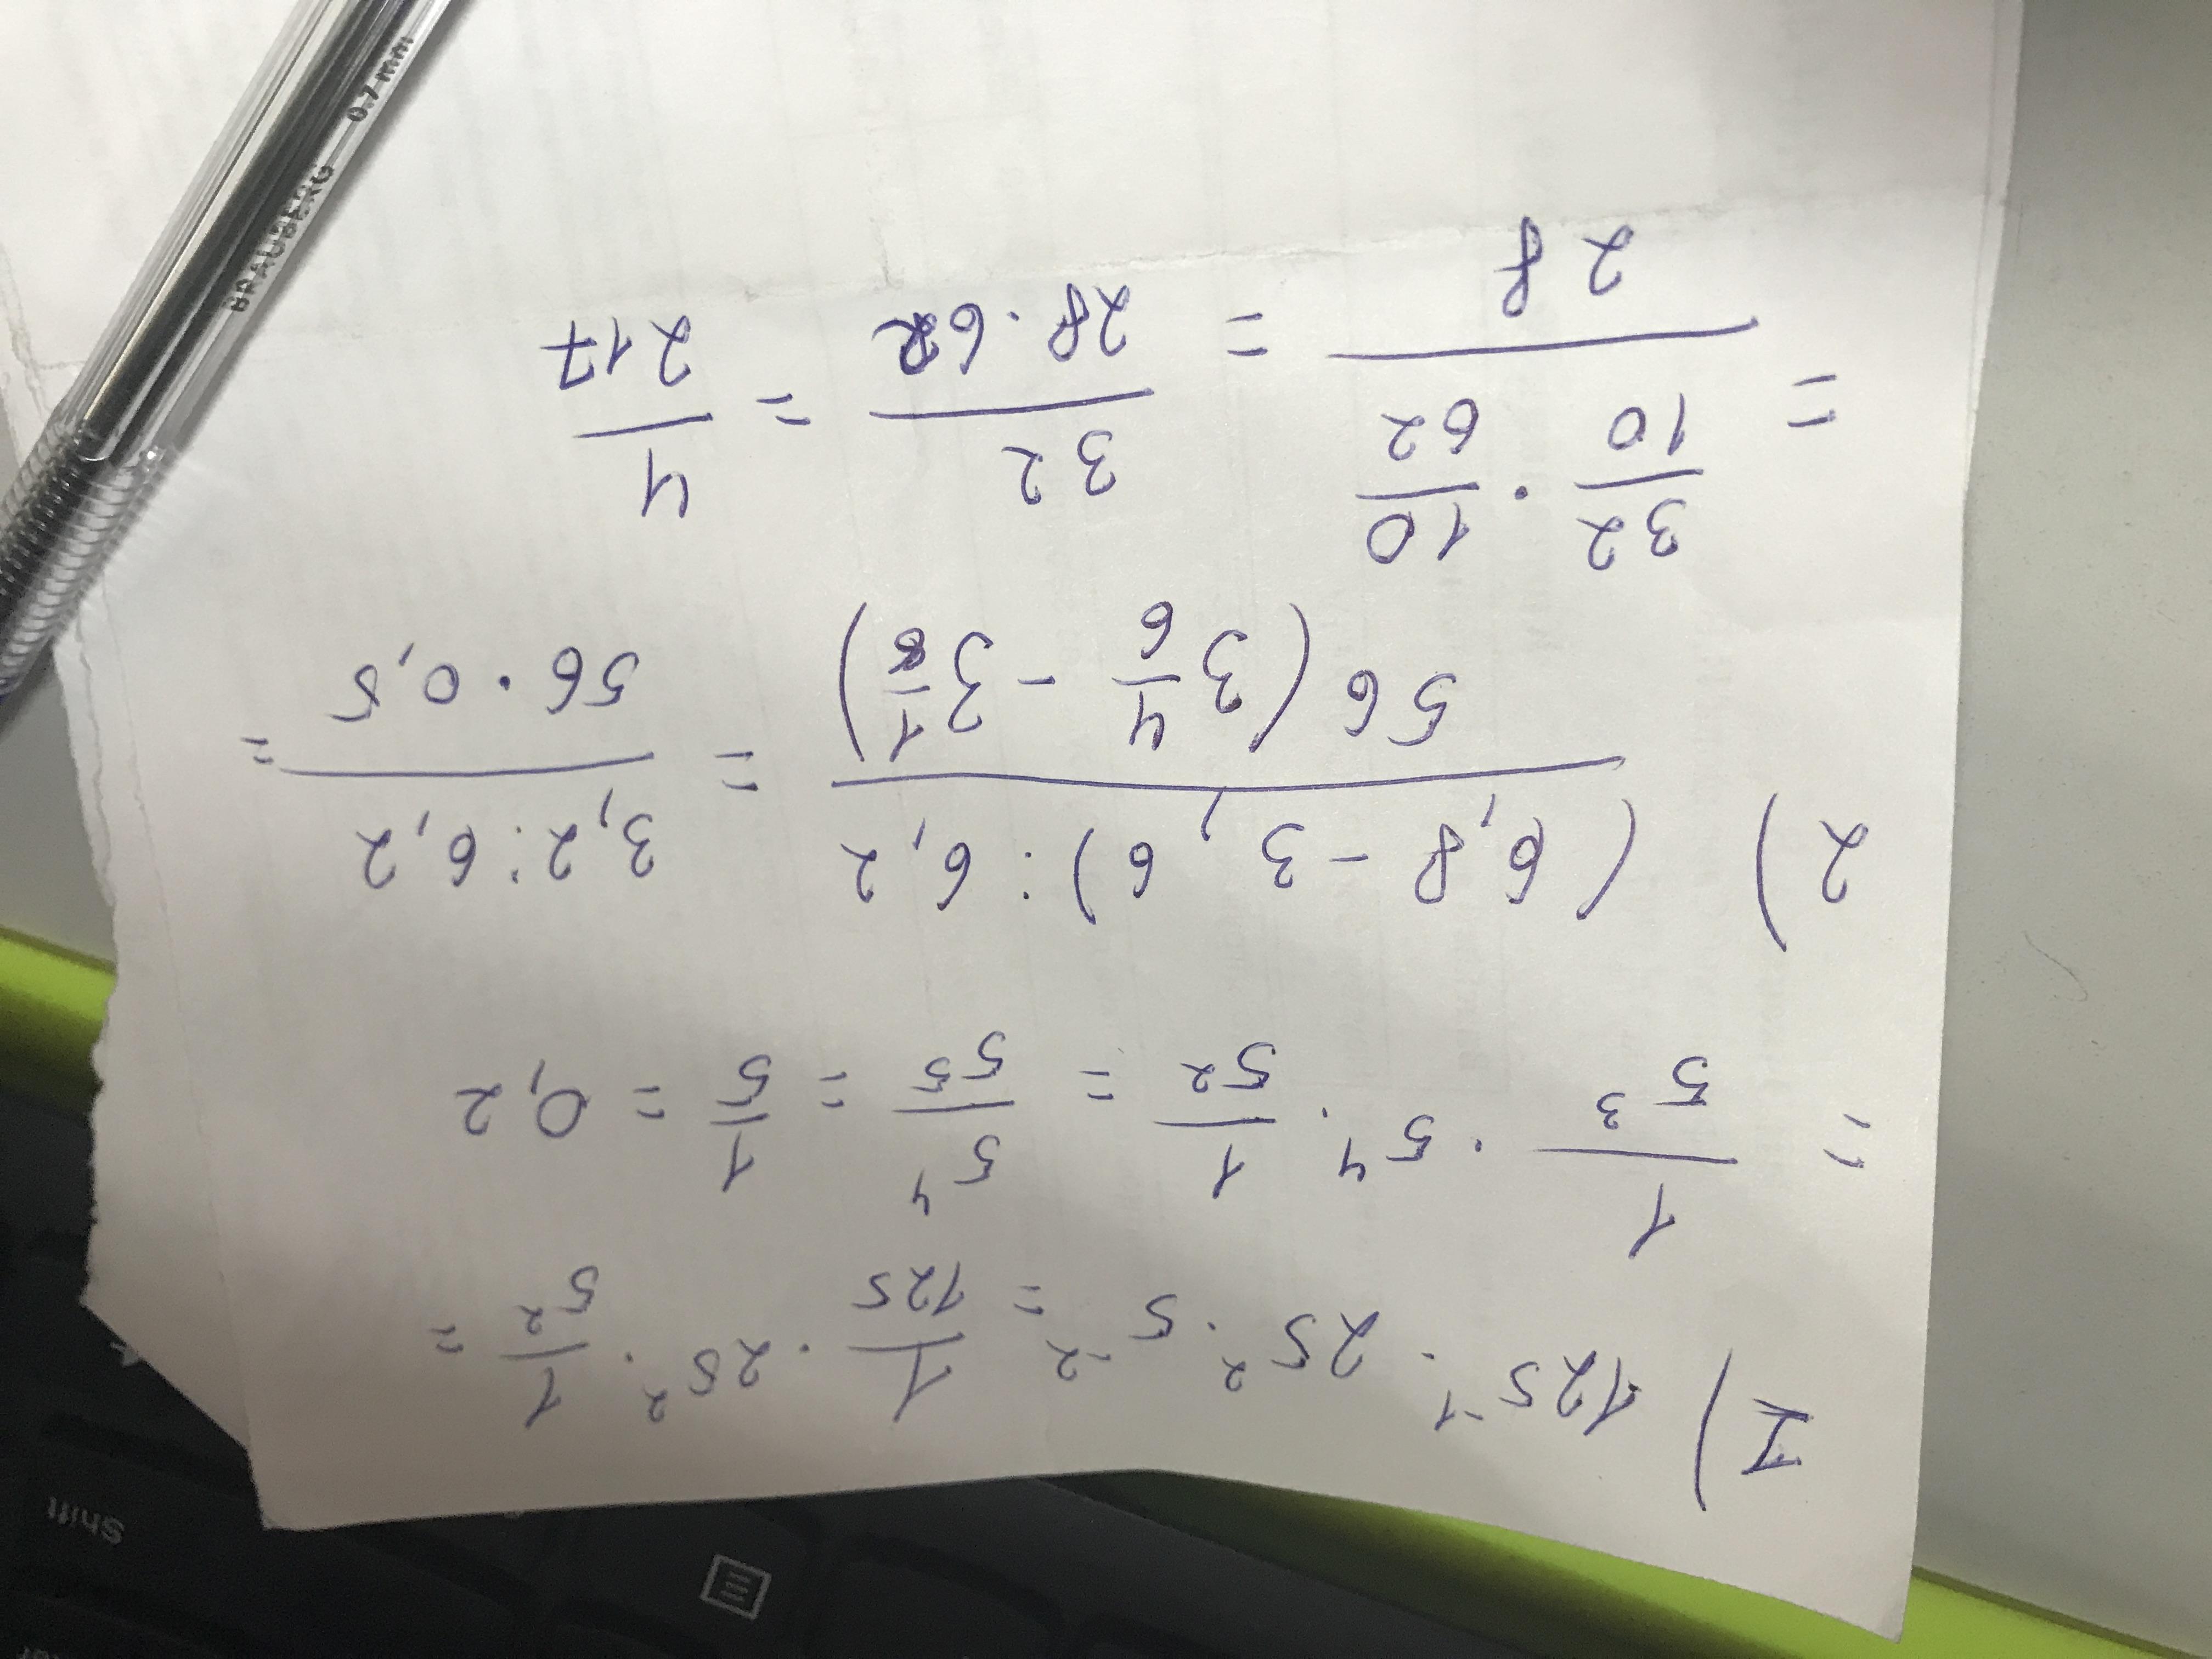 1) 125⁻¹ · 25² · 5⁻² = 1/125 · 25² · 1/5² =
= 1/5³ · 5⁴ · 1/5² = 5⁴/5⁵ = 1/5 = 0,2
2) (6,8 - 3,6) : 6,2 / 56 (3 4/6 - 3 1/6) = 3,2 : 6,2 / 56 · 0,5 =
= 32/10 · 10/62 / 28 = 32 / 28 · 62 = 4/217
BRAUBERG 0.7 mm
Shift